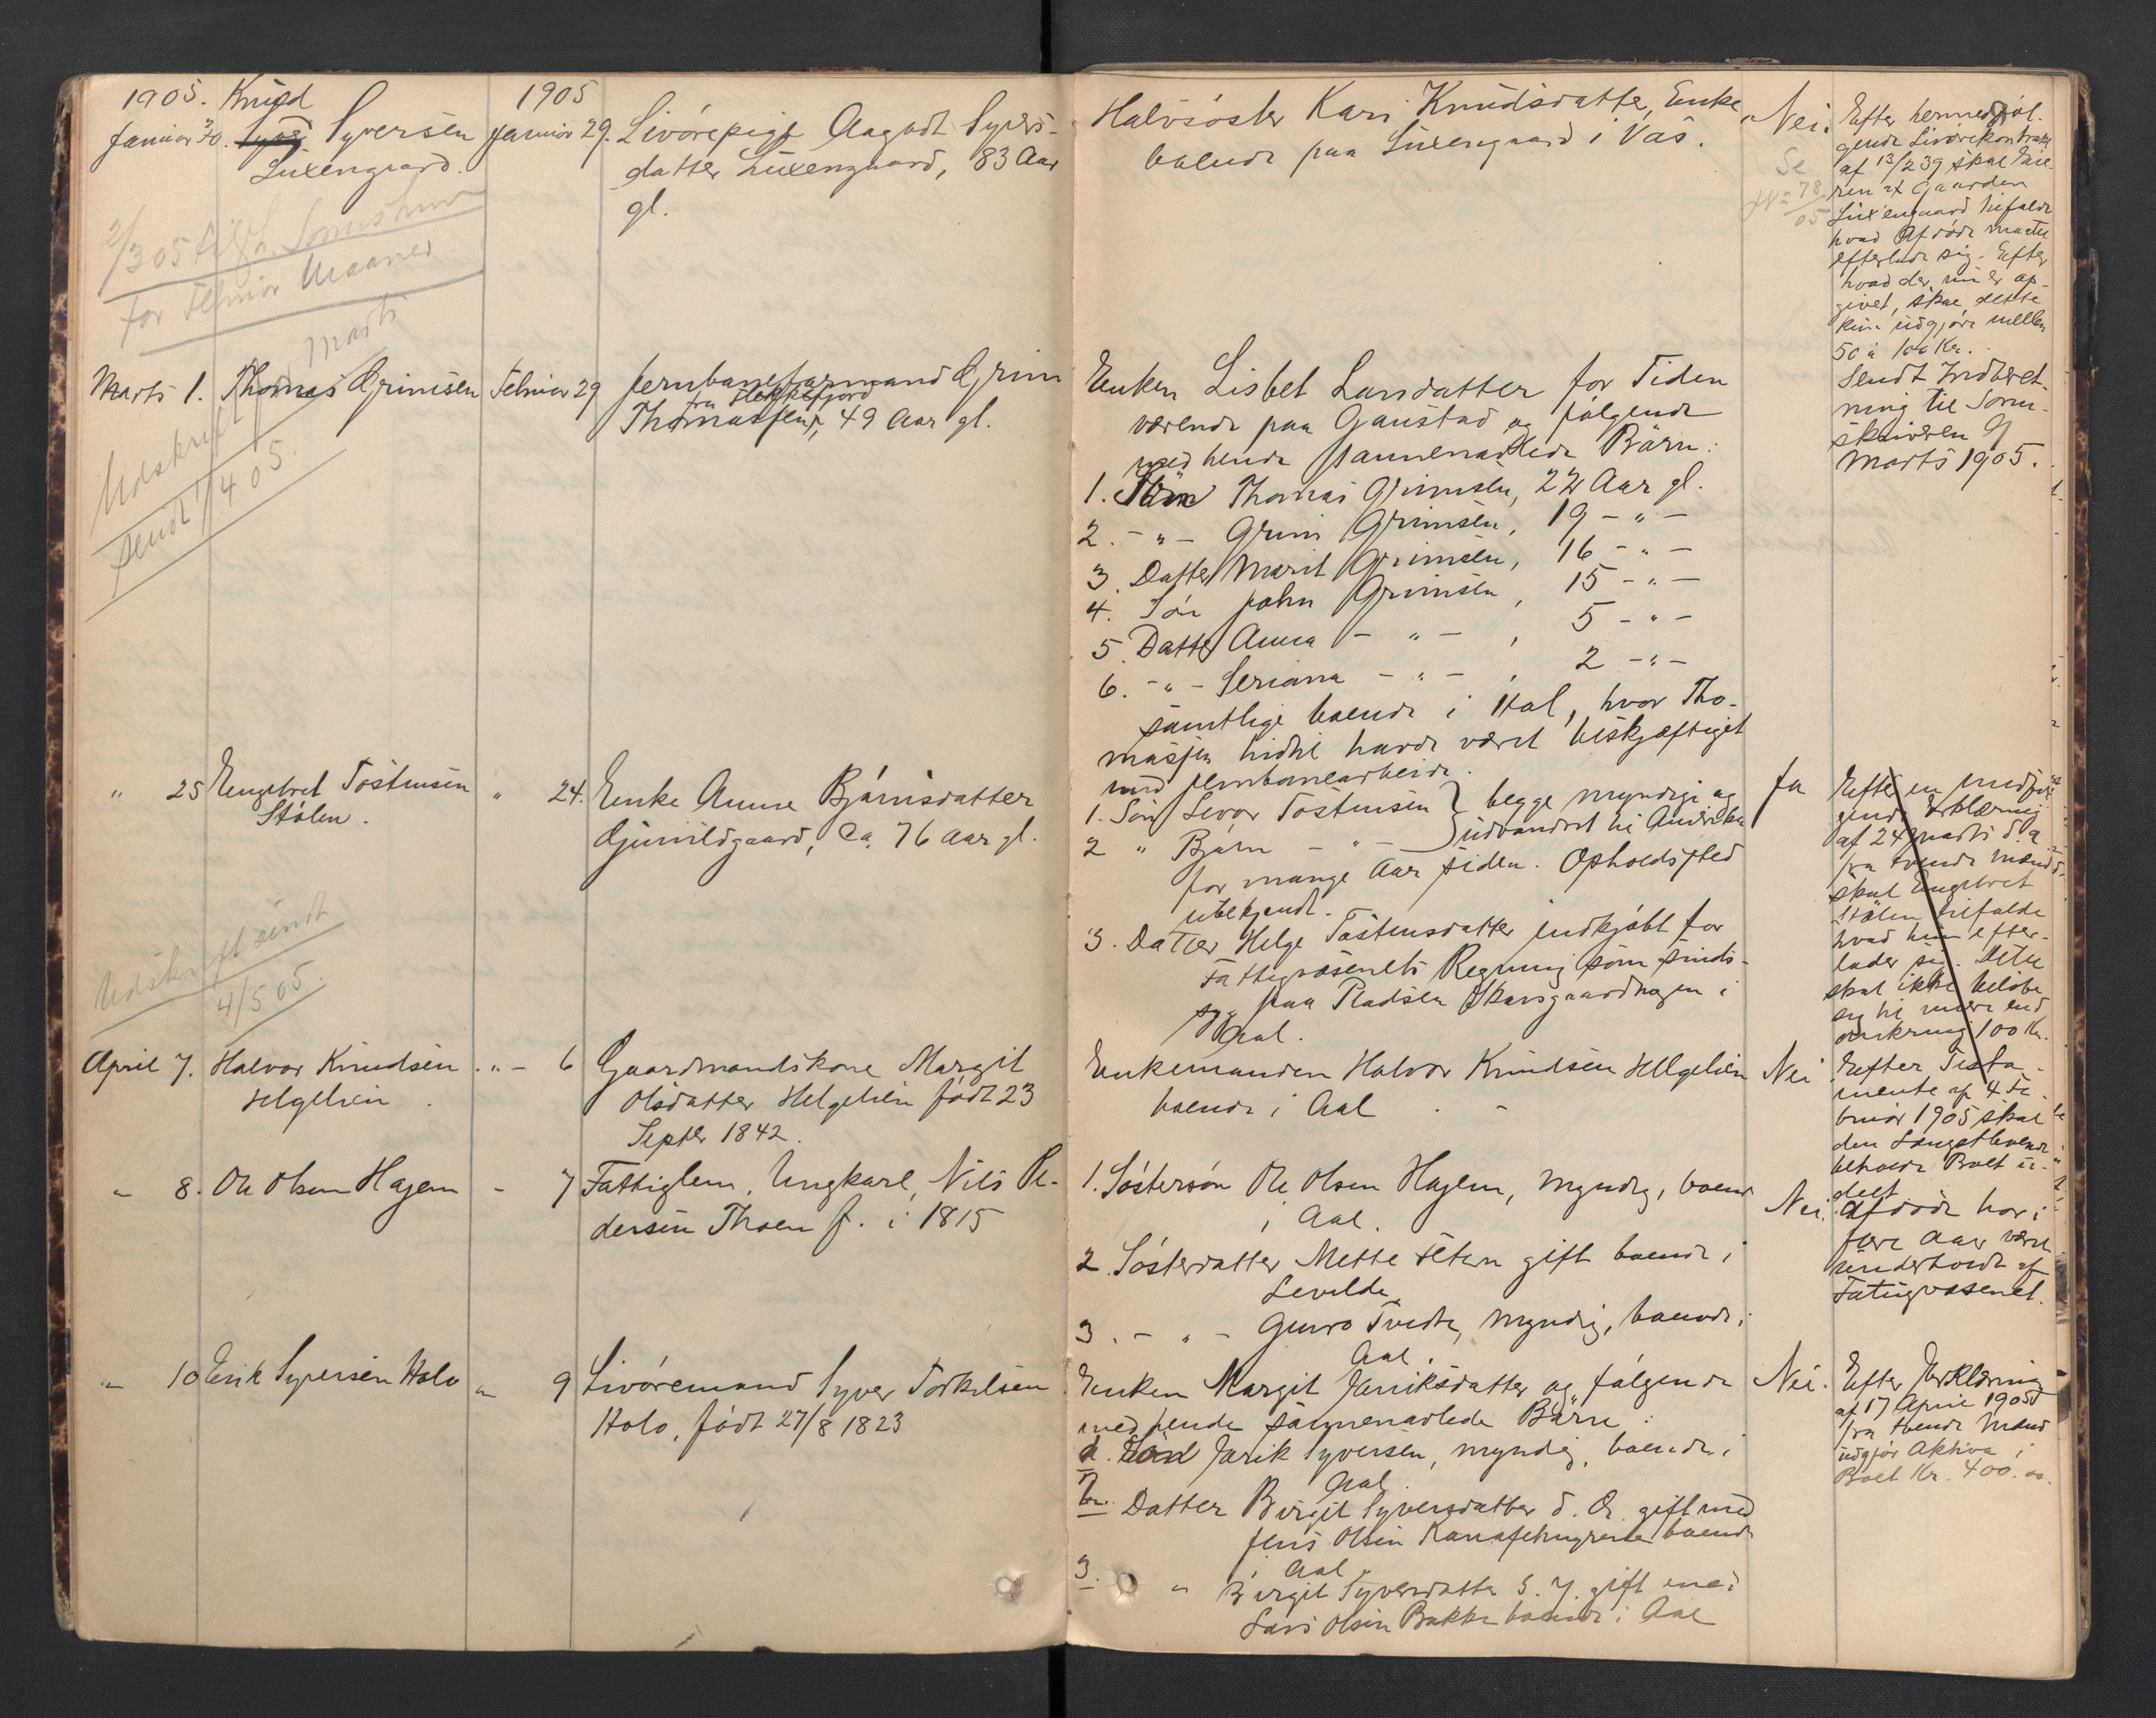 1905. Knud
Januar 30. Syver Syversen
Luxengaard.
2/3 05
for Februar Maaned
Marts 1. Thomas Grimsen
Udskrift Marts
sendt 1/4 05.
" 25 Engebret Tostensen
Stølen.
Udskrift sendt
4/5 05.
April 7. Halvor Knudsen
Helgelien
" 8. Ole Olsen Hagen
" 10 Erik Syversen Holo
1905
Januar 29.
Februar 29
" 24.
" - 6
- 7
" 9
Livörepige Aagodt Syvers-
datter Luxengaard, 83 Aar
gl.
Jernbaneformand Grim
fra Flekkefjord
Thomassen, 49 Aar gl.
Enke Anne Björnsdatter
Gunildgaard, Ca. 76 Aar gl.
Gaardmandskone Margit
Olsdatter Helgelien födt 23
Septbr 1842.
Fattiglem, Ungkarl, Nils Pe-
dersen Thoen f. i 1815
Livöremand Syver Torkelsen
Holo, födt 27/8 1823
Halvsöster Kari Knudsdatter, Enke,
boende paa Luxengaard i Vas.
Enken Lisbet Larsdatter for Tiden
værende paa Gaustad og følgende
med hende sammenavlede Börn:
1. Sön Thomas Grimsen, 22 Aar gl.
2. - " - Grim Grimsen, 19 - " -
3. Datter Marit Grimsen, 16 - " -
4. Sön John Grimsen, 15 - " -
5. Datter Anna - " - , 5 - " -
6. - " - Seriana - " - , 2 - " -
samtlige boende i Hol, hvor Tho-
massen hidtil havde været beskjæftiget
med Jernbanearbeide.
1. Sön Sevar Tostensen } begge myndige og
2 " Björn - " - } udvandret til Amerika
for mange Aar siden. Opholdssted
ubekjendt.
3. Datter Helge Tostensdatter indkjöbt for
Fattigvæsenets Regning som sinds-
syg paa Pladsen Skarsgaardhagen i
Aal.
Enkemanden Halvor Knudsen Helgelien
boende i Aal
1. Söstersön Ole Olsen Hagen, myndig, boende
i Aal.
2. Sösterdatter Mette gift boende i
3. - " - Guro Tvedte, myndig, boende i
Aal.
Enken Margit Jeriksdatter og følgende
med hende sammenavlede Börn:
1. Sön Jerik Syversen, myndig, boende i
Aal.
2. Datter Birgit Syversdatter d. Æ. gift med
Jens Olsen boende
i Aal.
3. " Birgit Syversdatter d. Y. gift med
Lars Olsen Bakke boende i Aal
Nei.
Se
No 78/05
Ja
Nei
Nei.
Nei.
Efter hermed föl-
gende Livörekontrakt
af 13/2 39 skal Eie-
ren af Gaarden
Luxengaard tilfalde
hvad Afdöde maatte
efterlade sig. Efter
hvad der nu er op-
givet, skal dette
kun udgjøre mellem
50 à 100 Kr.
Sendt Indberet-
ning til Soren-
skriveren 9
Marts 1905.
Efter en medföl-
gende Erklæring
af 24 Marts d. a.
fra tvende Mænd
skal Engebret
Stølen tilfalde
hvad hun efter-
lader sig. Dette
skal ikke belöbe
sig til mere end
omkring 100 Kr.
Efter Testa-
mente af 4 Fe-
bruar 1905 skal
den Længstlevende
beholde Boet u-
delt.
Afdöde har i
flere Aar været
underholdt af
Fattigvæsenet.
Efter Jerklæring
af 17 April 1905
fra tvende Mænd
udgjör Aktiva i
Boet Kr. 400.00.